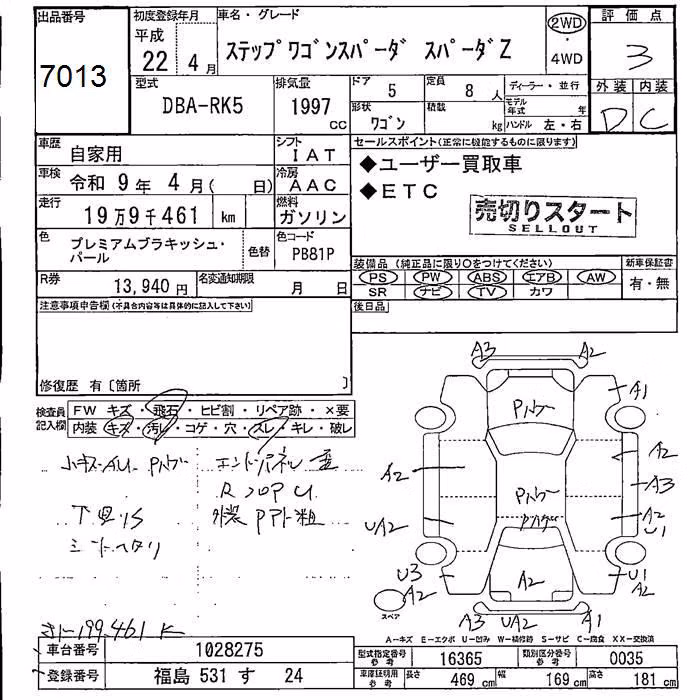 出品番号
7013
初度登録年月
平成
22年 4月
車名・グレード
ステップワゴンスパーダ スパーダZ
2WD
・
4WD
評価点
3
外装 内装
D C
型式
DBA-RK5
排気量
1997
CC
ドア
5
定員
8人
形状
ワゴン
積載
kg
ディーラー・並行
モデル年式 年
ハンドル 左・右
車歴
自家用
シフト
IAT
車検
令和 9年 4月( 日)
冷房
AAC
走行
19万9千461 km
燃料
ガソリン
色
プレミアムブラキッシュ・
パール
色替
色コード
PB81P
R券
13,940円
名変通知期限
月 日
セールスポイント(正常に機能するものに限ります)
◆ユーザー買取車
◆ETC
売切りスタート
SELLOUT
装備品(純正品に限り○をつけてください)
PS PW ABS エアB AW
SR ナビ TV カワ
新車保証書
有・無
後日品
注意事項申告欄(不具合内容等は具体的に記入して下さい)
修復歴 有〔箇所 〕
検査員
記入欄
FW キズ・飛石・ヒビ割・リペア跡・×要
内装 キズ・汚レ・コゲ・穴・スレ・キレ・破レ
小キズAU-
エンドパネル
下回りS
シートヘタリ
外装Pアト粗
199,461 K
A3 A2
A1
A2
A2
A3
A2
U1
UA2
U3
A2
A2
U1
A2
A3 UA2 A1
スペア
A-キズ E-エクボ U-凹み W-補修跡 S-サビ C-腐食 XX-交換済
車台番号
1028275
登録番号
福島 531 す 24
型式指定番号
参考
16365
類別区分番号
参考
0035
車庫証明用
参考
長さ 469cm 幅 169cm 高さ 181cm